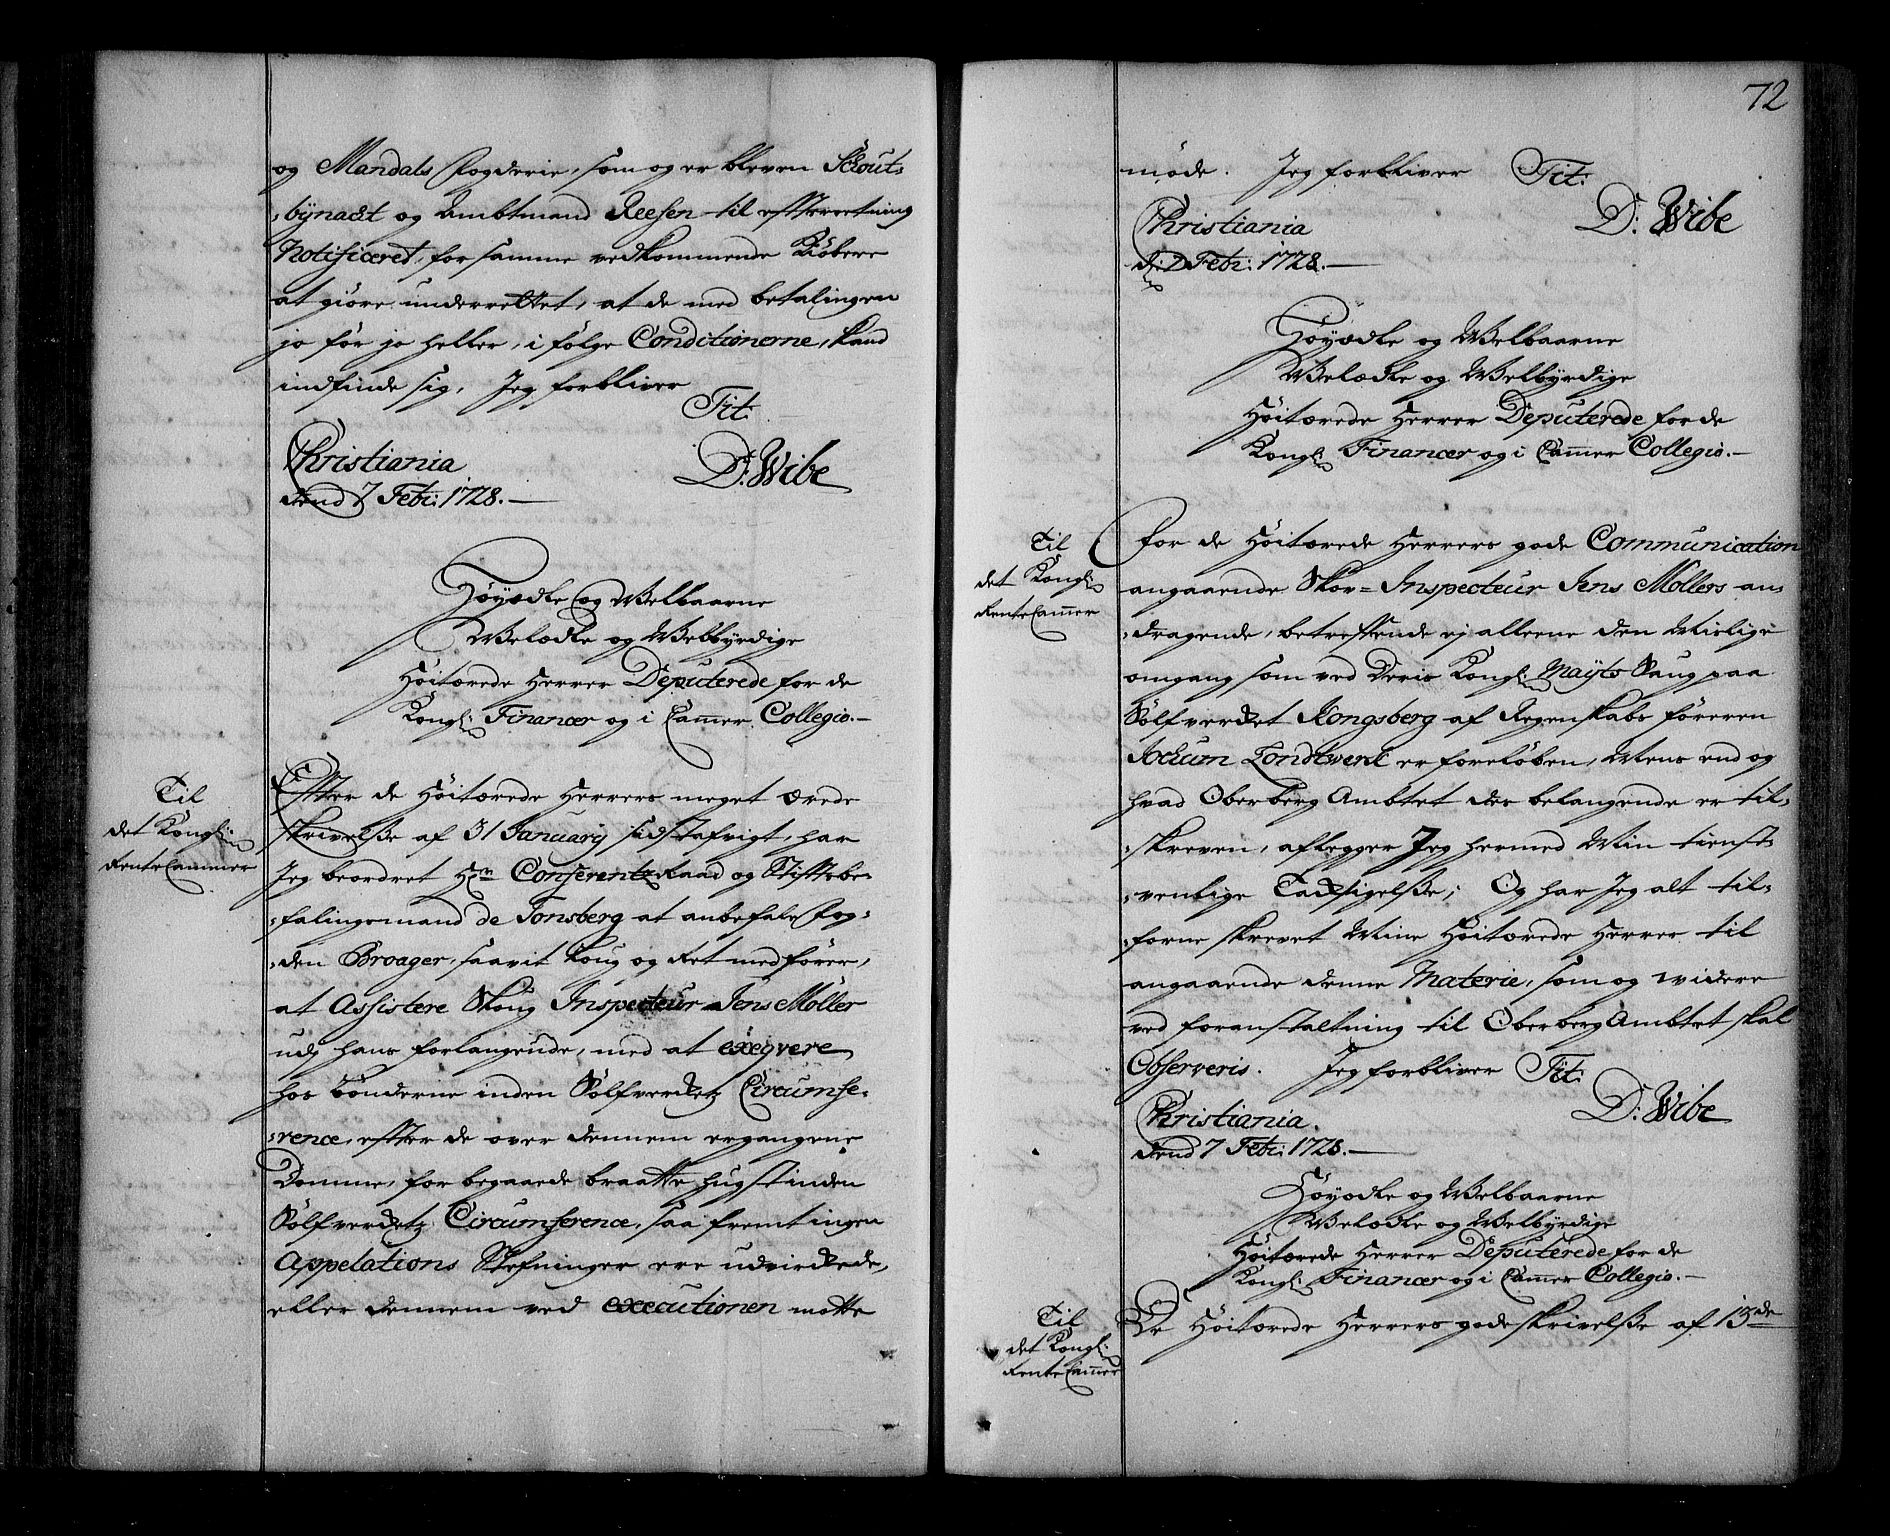 og Mandals Fogderie, som og er bleven Schout-
bÿnacht og Ambtmand Reesen til effterretning
Notificeret, for samme vedkommende Kiøbere
at giøre underrettet, at de med betalingen
jo før jo heller, i følge Conditionerne, kand
indfinde sig, Jeg forbliver
Tit:
Christiania
dend 7 Febr: 1728.
D: Wibe
Høyædle og Welbaarne
Welædle og Welbyrdige
Høitærede Herrer Deputerede for de
Kongl: Financer og i Cammer Collegio.
Til
det Kongl:
Rente Cammer
Effter de Høitærede Herrers meget ærede
skrivelße af 31 January sidstafvigt, har
Jeg beordret Hr Conferentz Raad og Stiftsbe-
falingsmand de Tonsberg at anbefale Fog-
den Broager, saavit Loug og Ret medfører,
at Assistere Skoug Inspecteur Jens Møller
udj hans forlangende, med at exeqvere
hos bønderne inden Sølfverketz Circumfe-
rence, effter de over dennem ergangene
Domme, for begaaede braatte hugst inden
Sølfverketz Circumference, saa fremt ingen
Appelations Stefninger ere udvirkede,
eller dennem ved executionen motte
72
møde. Jeg forbliver Tit:
Christiania
d: 7 Febr: 1728.
D: Wibe
Høyædle og Welbaarne
Welædle og Welbyrdige
Høitærede Herrer Deputerede for de
Kongl: Financer og i Cammer Collegio.
Til
det Kongl:
Rente Cammer
For de Høitærede Herrers gode Communication
angaaende Skov-Inspecteur Jens Møllers an-
dragende, betreffende ej alleene den Mislige
omgang som ved Deris Kongl: Maÿts Saug paa
Sølfverket Kongsberg af Regenskabs føreren
Jochum er foreløben, Mens end og
hvad OberbergAmbtet des belangende er til-
skreven, aflegger Jeg hermed Min tienst-
venlige Tacksigelße; Og har Jeg alt til-
forne skrevet Mine Høitærede Herrer til
angaaende denne Materie, som og widere
ved foranstaltning til OberbergAmbtet skal
Observeris. Jeg forbliver Tit:
Christiania.
dend 7 Febr: 1728.
D: Wibe
Høyædle og Welbaarne
Welædle og Welbyrdige
Høitærede Herrer Deputerede for de
Kongl: Financer og i Cammer Collegio.
Til
det Kongl:
Rente Cammer
De Høitærede Herrers gode skrivelße af 13de